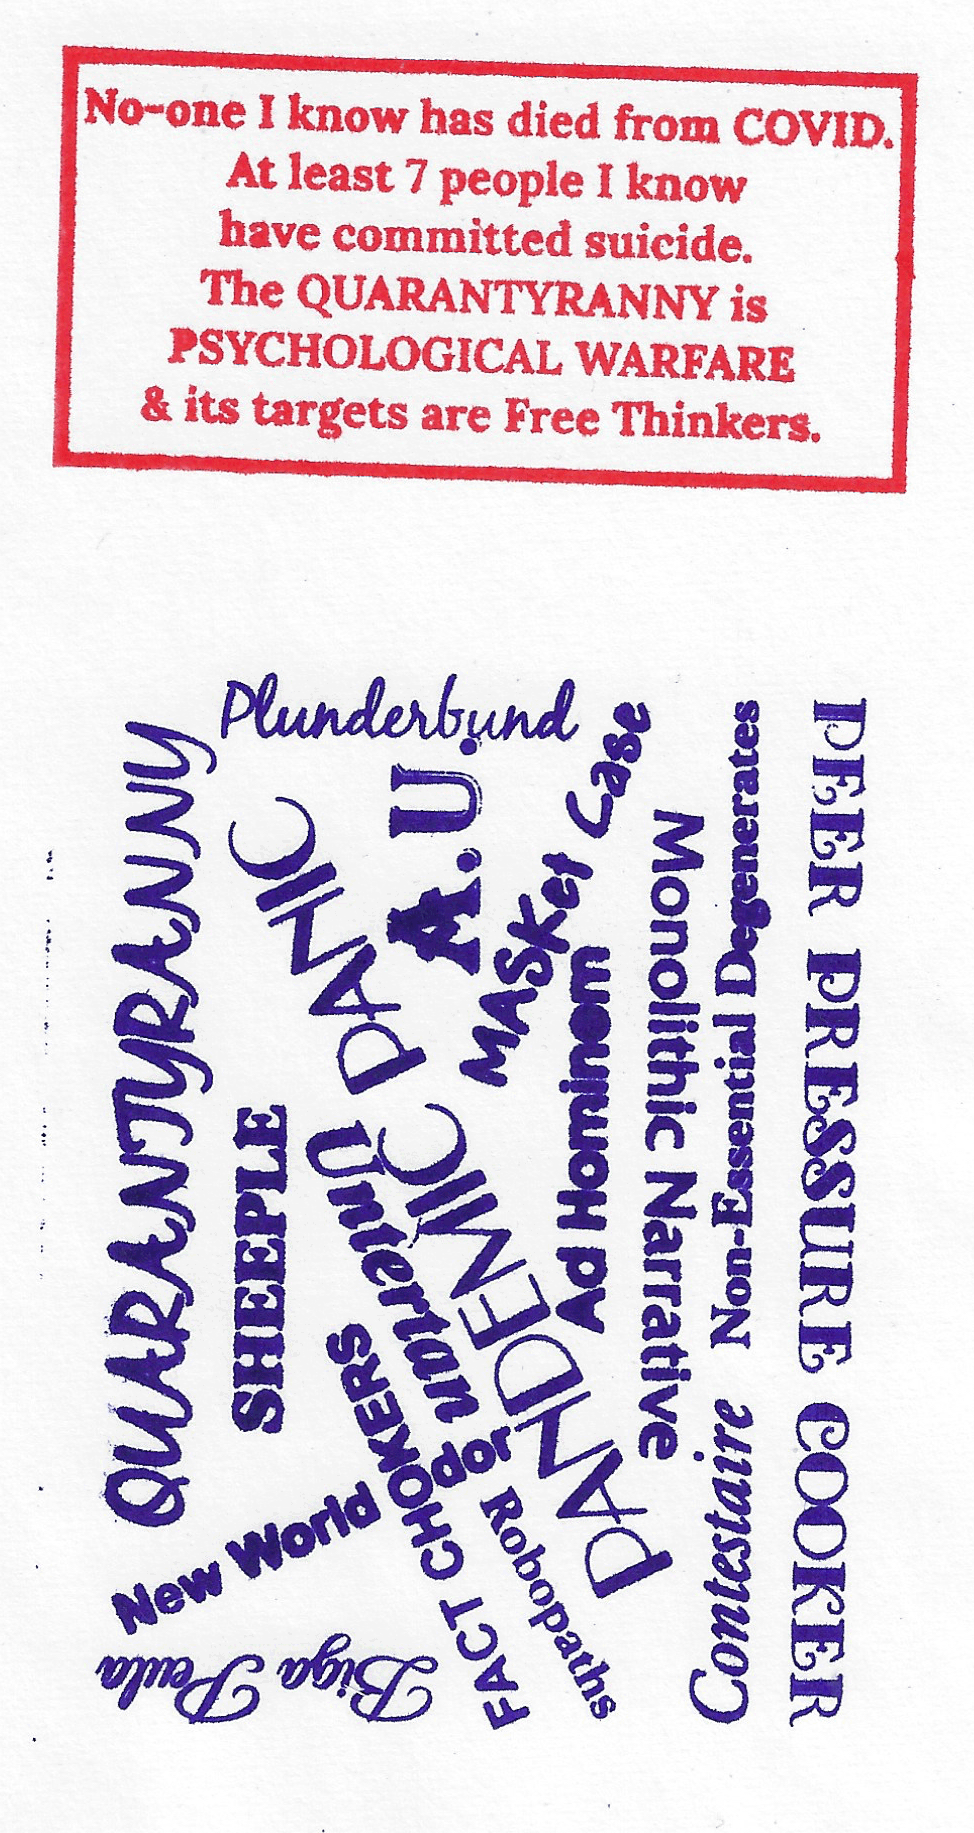 No-one I know has died from COVID.
At least 7 people I know
have committed suicide.
The QUARANTYRANNY is
PSYCHOLOGICAL WARFARE
& its targets are Free Thinkers.
Plunderbund
QUARANTYRANNY
SHEEPLE
PANDEMIC PANIC
A.U.
MASKet Case
Ad Hominem
Monolithic Narrative
Non-Essential Degenerates
PEER PRESSURE COOKER
Contestaire
Robopaths
FACT CHOKERS
New World Odor
Biga Peula